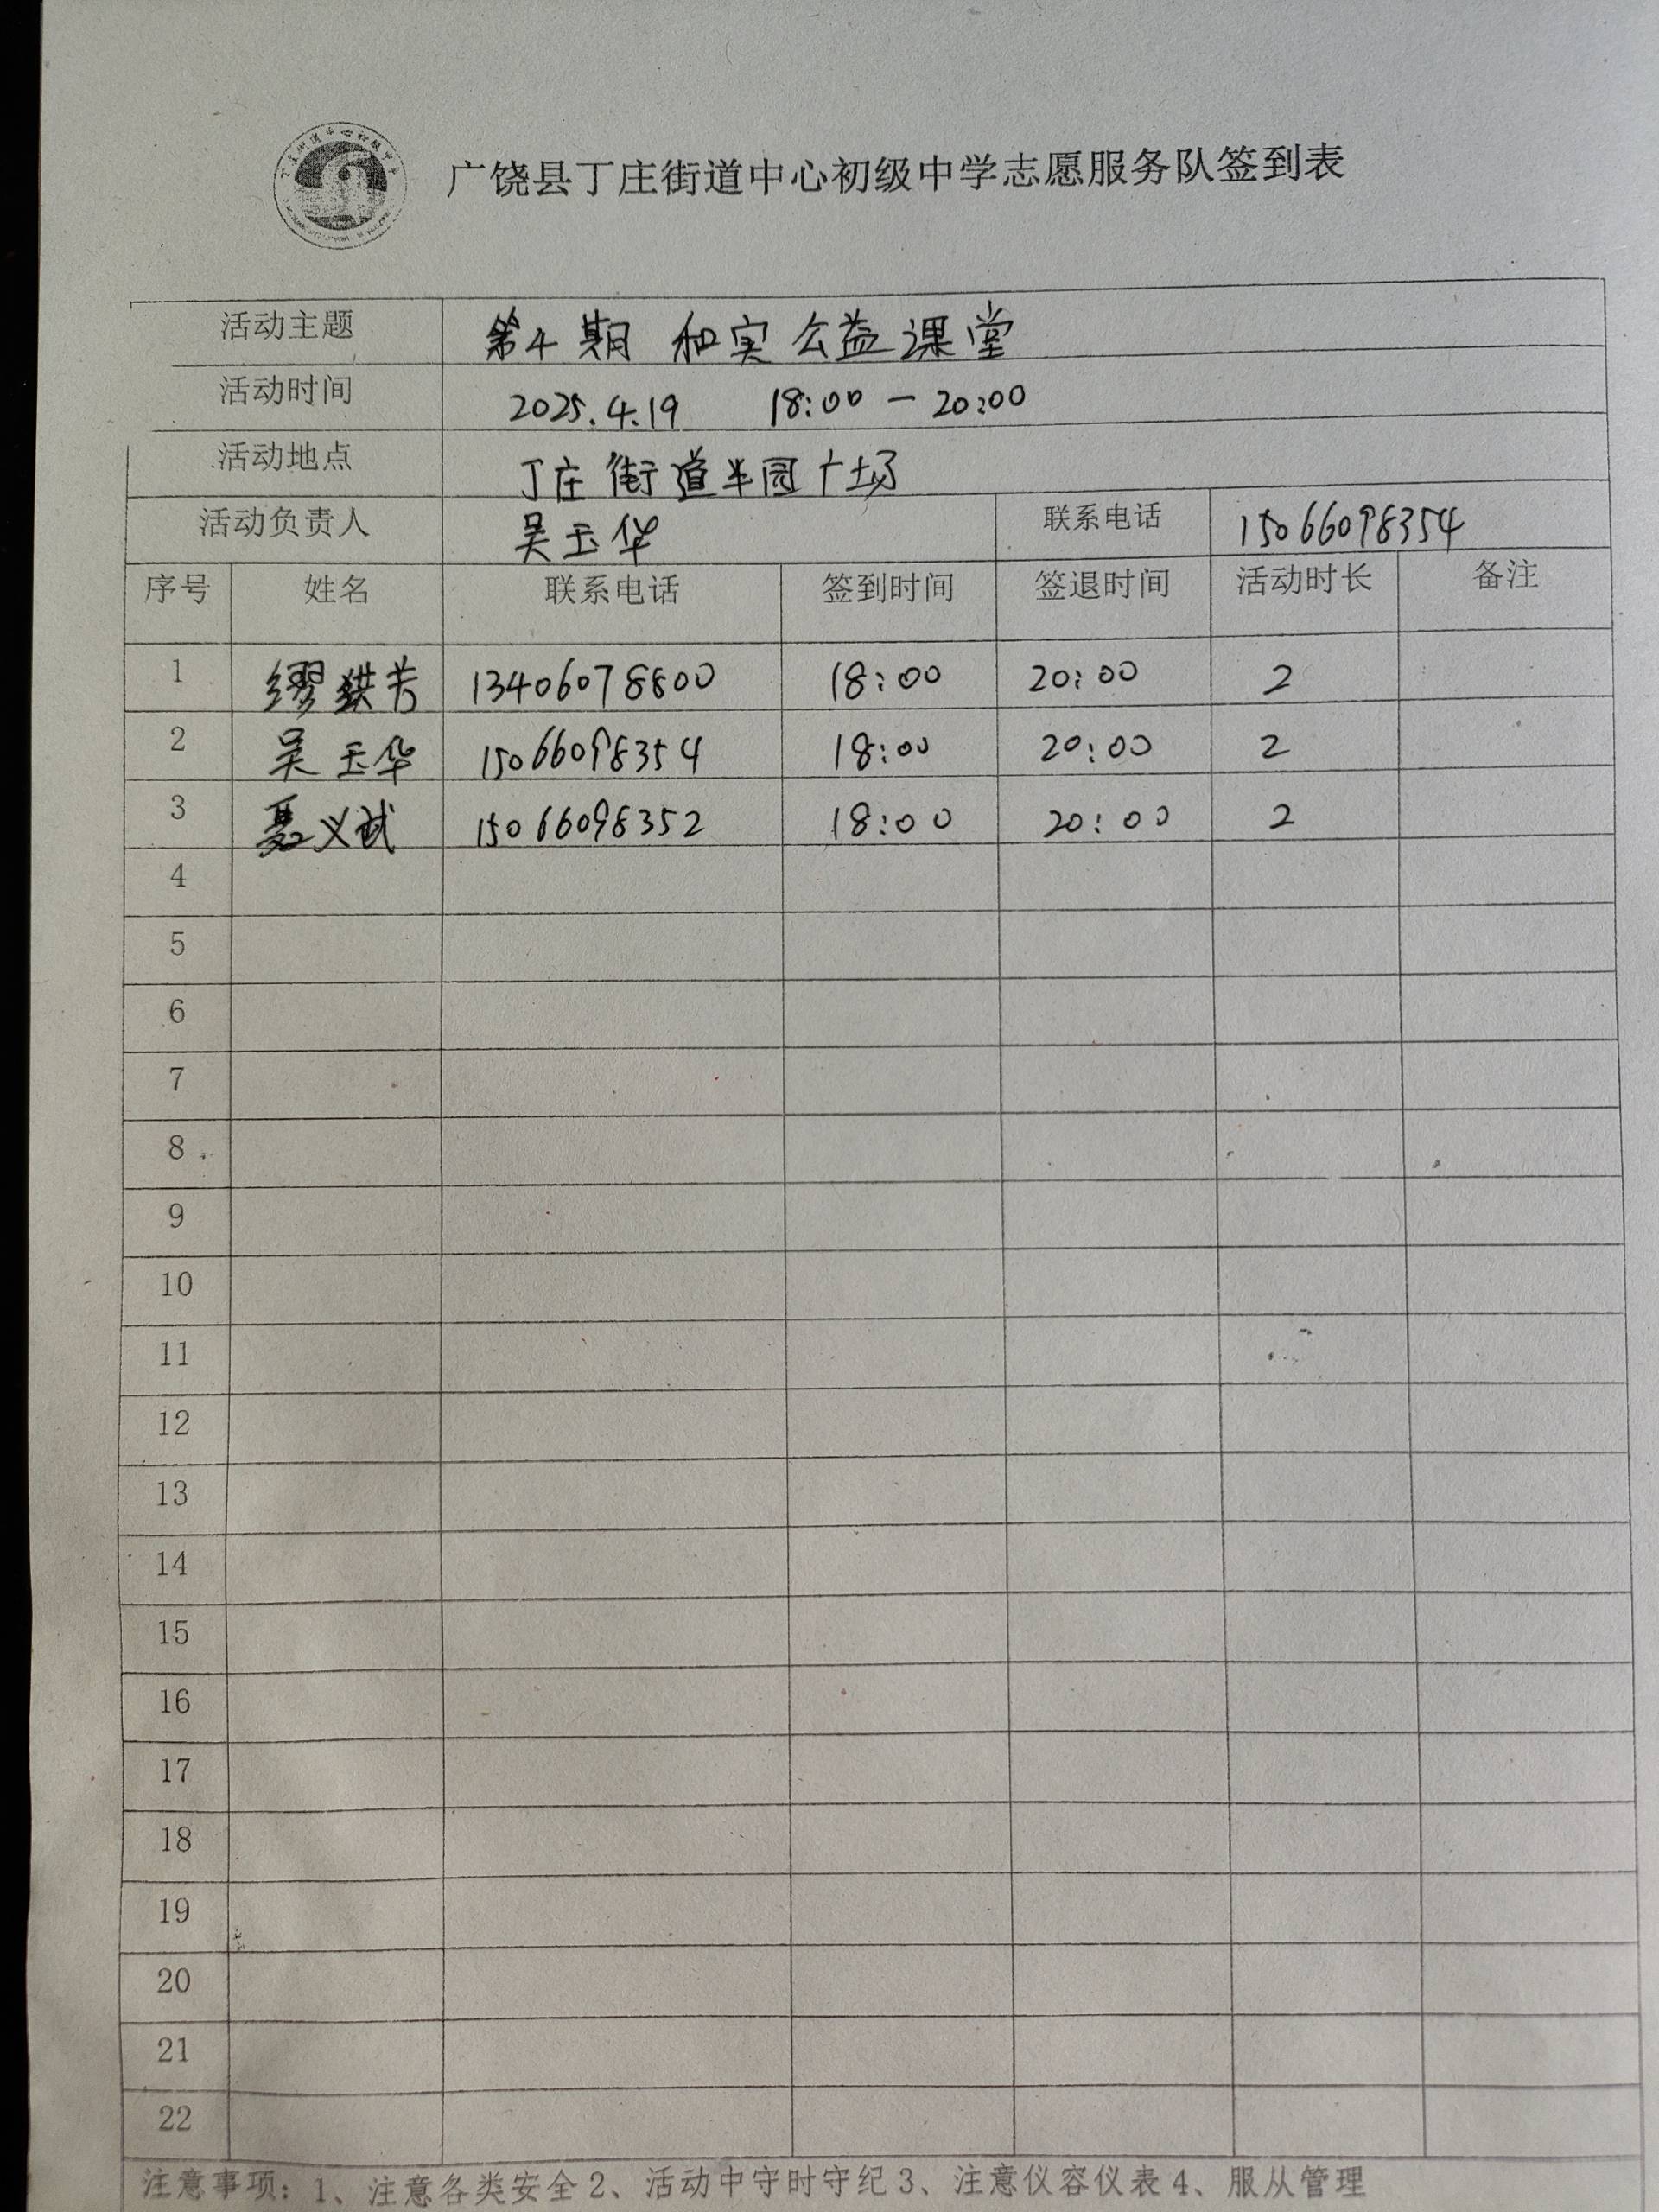 广饶县丁庄街道中心初级中学志愿服务队签到表
活动主题 第4期 和实公益课堂
活动时间 2025.4.19 18:00-20:00
活动地点 丁庄街道半园广场
活动负责人 吴玉华 联系电话 15066098354
序号 姓名 联系电话 签到时间 签退时间 活动时长 备注
1 缪 芳 13406078800 18:00 20:00 2
2 吴玉华 15066098354 18:00 20:00 2
3 聂义试 15066098352 18:00 20:00 2
4
5
6
7
8
9
10
11
12
13
14
15
16
17
18
19
20
21
22
注意事项：1、注意各类安全2、活动中守时守纪3、注意仪容仪表4、服从管理